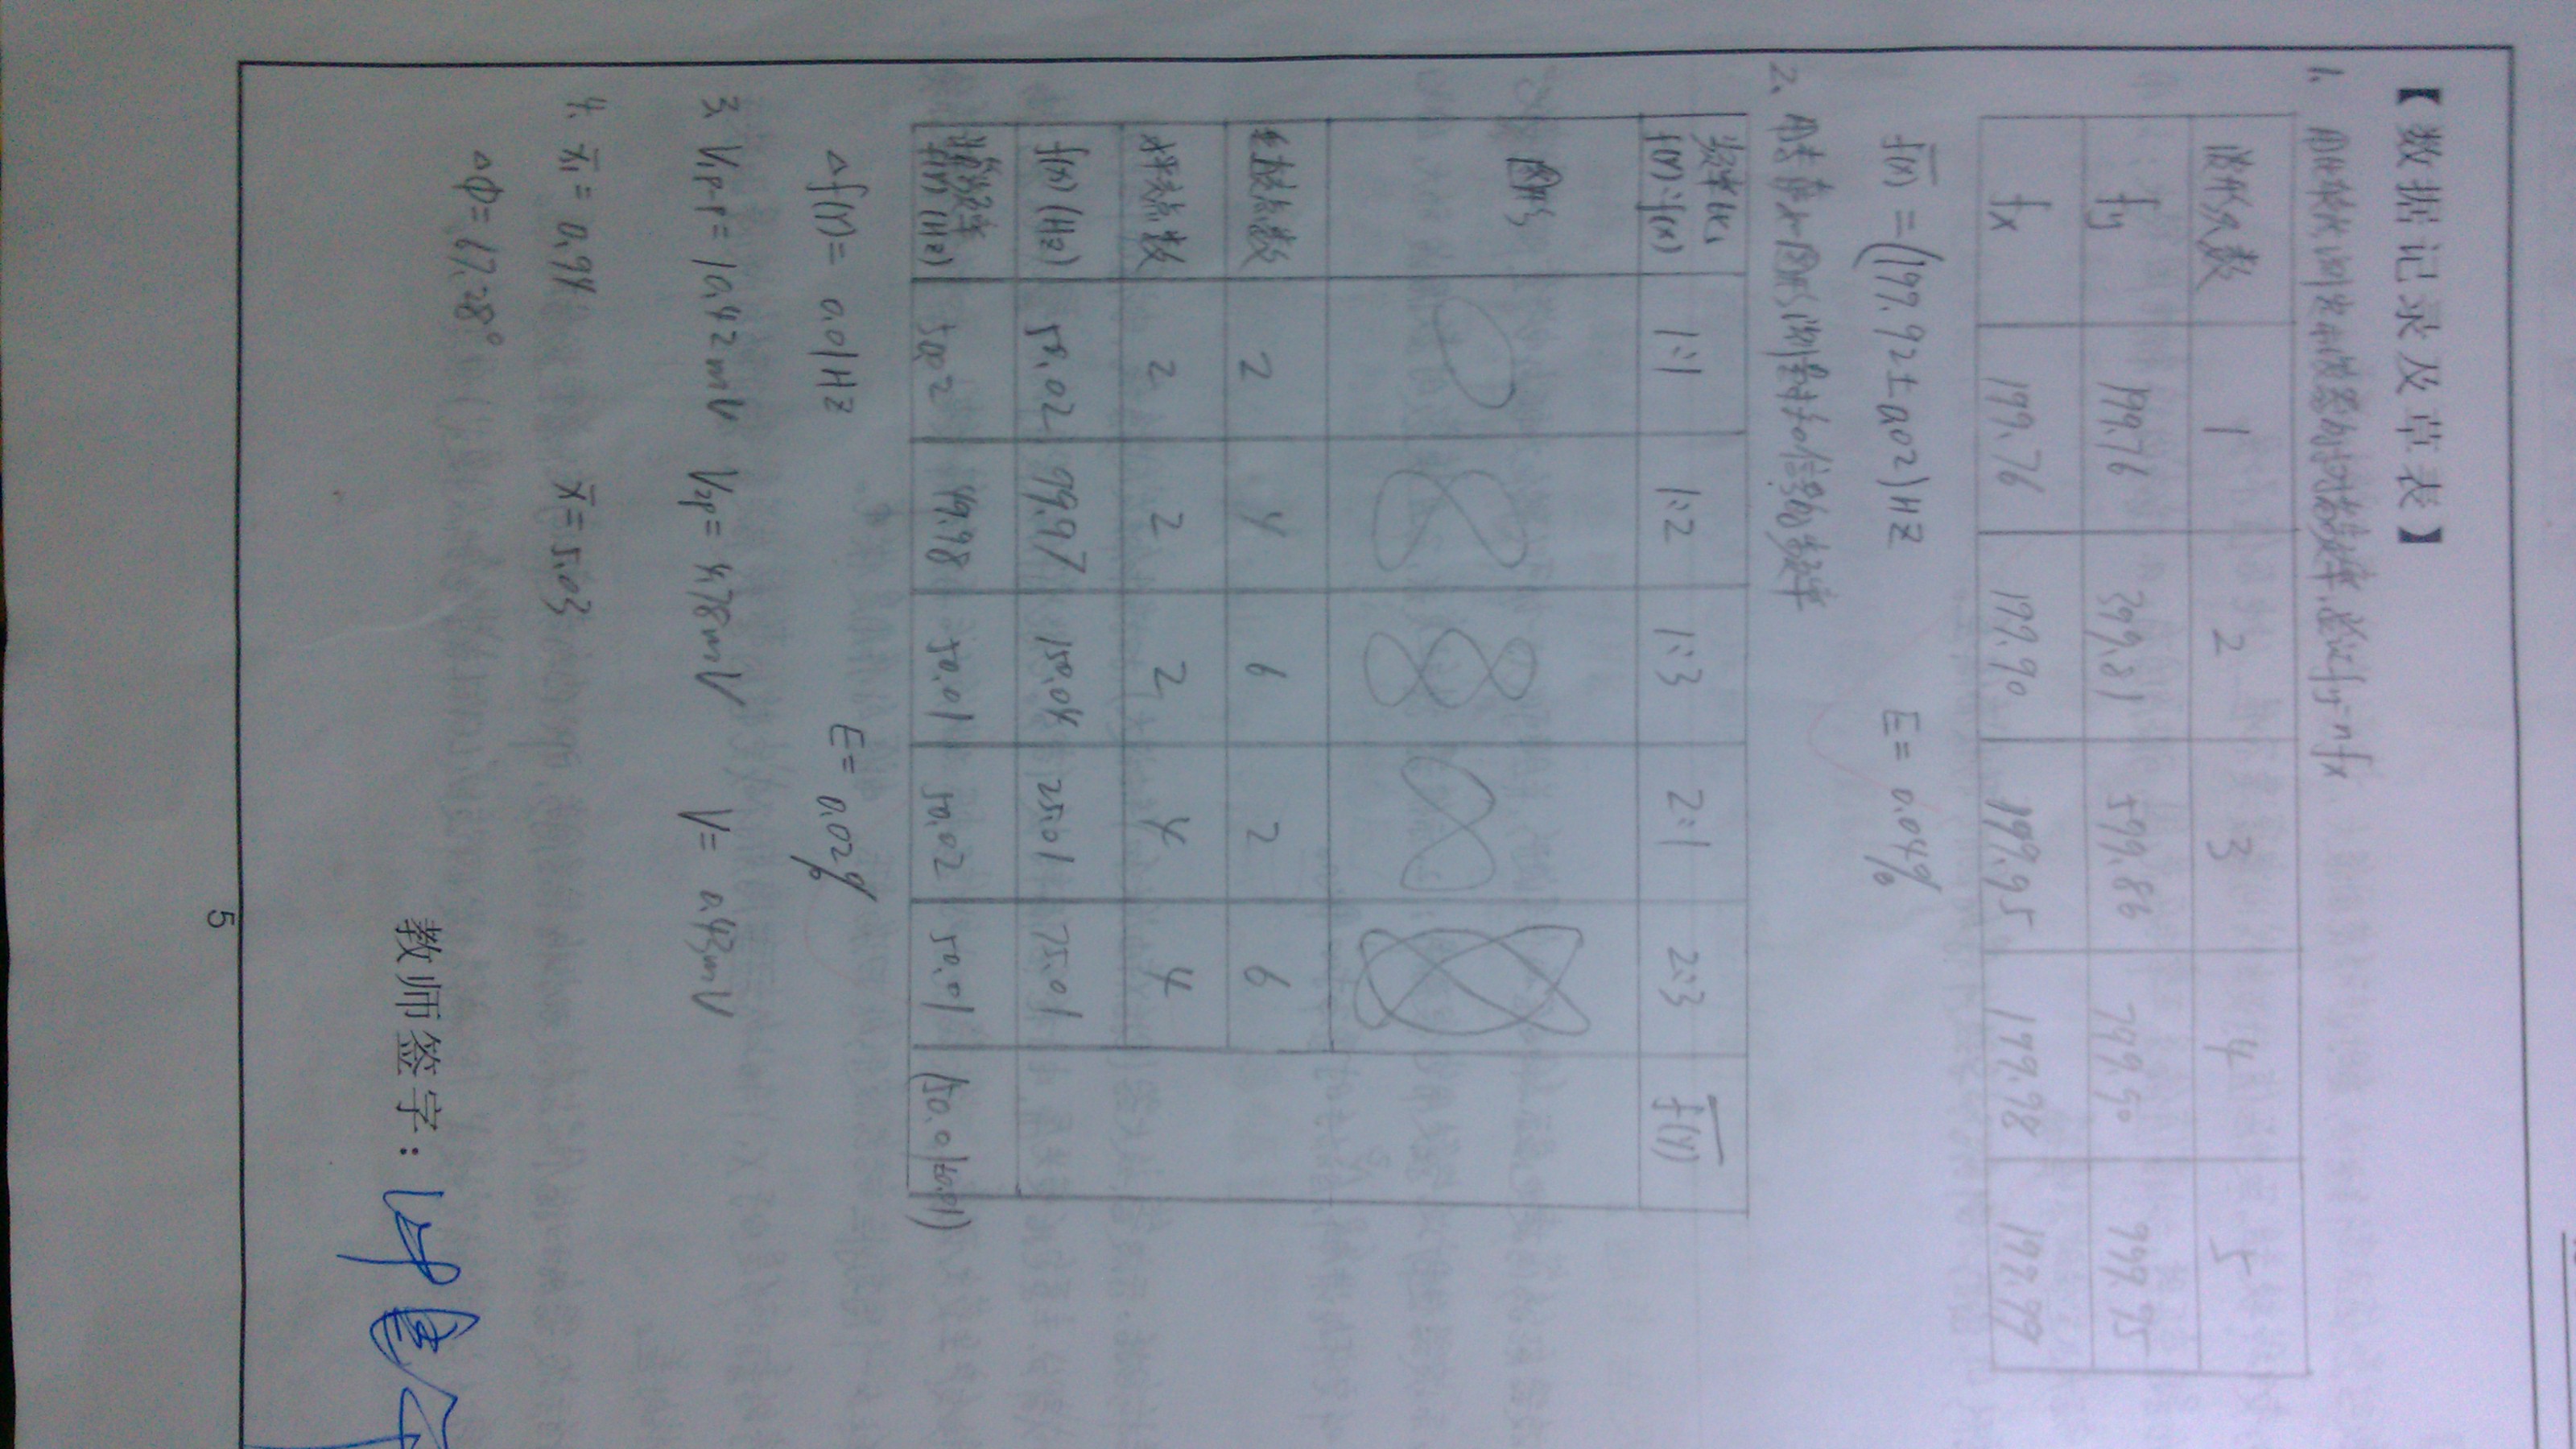 【数据记录及草表】
1. 用比较法测出示波器的扫描频率.验证fy=nfx
波形个数 1 2 3 4 5
fy 199.76 399.81 599.86 799.90 999.95
fx 199.76 199.90 199.95 199.98 199.99
f(x) = (199.92±0.02)HZ E= 0.04%
2. 用李萨如图形测量未知信号的频率
频率比 f(Y):f(X) 1:1 1:2 1:3 2:1 2:3 f(Y)
图形
点数 2 4 6 2 6
点数 2 2 2 4 4
f(x) (Hz) 50.02 99.97 150.04 25.01 75.01
频率 f(Y) (Hz) 50.02 49.98 50.01 50.02 50.01 (50.01±0.01)
△f(Y)= 0.01HZ E= 0.02%
3. V1p-p= 10.42mV V2p= 4.78mV V= 0.43mV
4. x1= 0.94 x= 5.03
△Φ= 67.28°
教师签字:
5